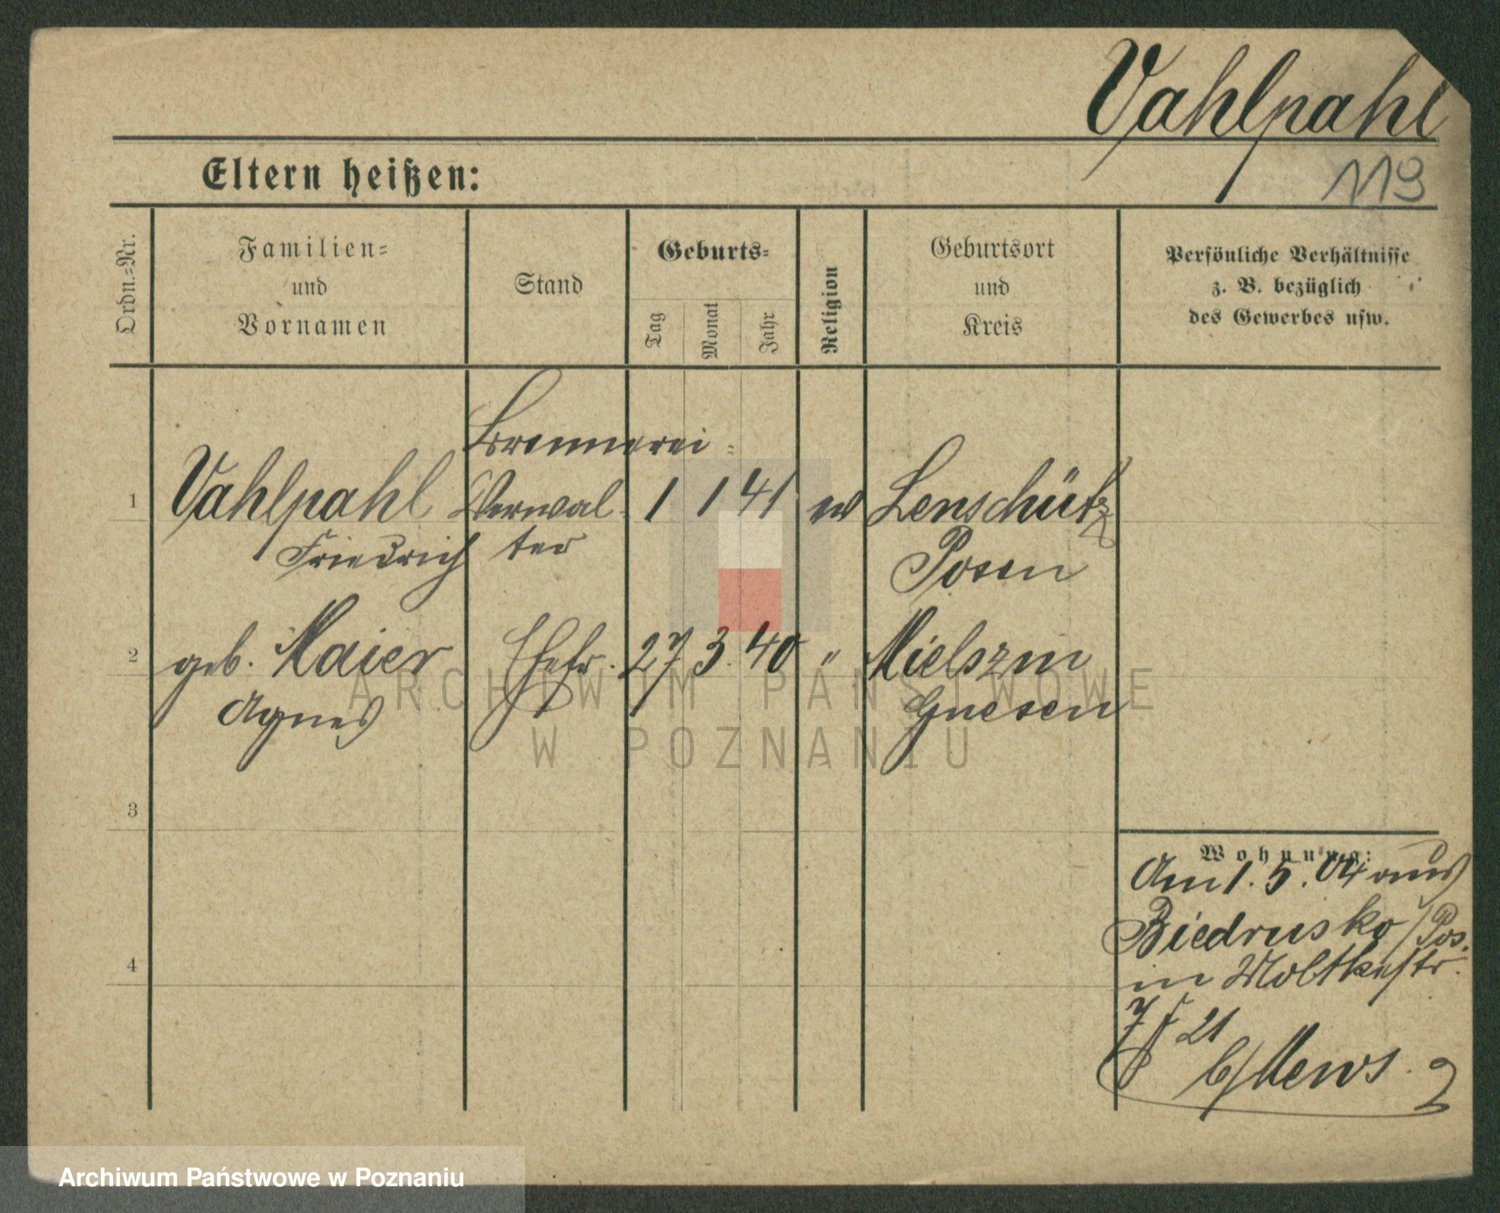 Vahlpahl
119
Eltern heißen:
Ordn.-Nr.
Familien-
und
Vornamen
Stand
Geburts-
Tag
Monat
Jahr
Religion
Geburtsort
und
Kreis
Persönliche Verhältnisse
z. B. bezüglich
des Gewerbes usw.
Brennerei-
1 Vahlpahl Verwal- 1 1 41 Lenschütz
Friedrich ter Posen
2 geb. Maier Ehefr. 27 3. 40 " Mielszin
Agnes Gnesen
3
4
Wohnung:
Am 1. 5. 04 aus
Biedrusko / Pos.
in Moltkestr.
21
b/ Mews
ARCHIWUM PAŃSTWOWE
W POZNANIU
Archiwum Państwowe w Poznaniu